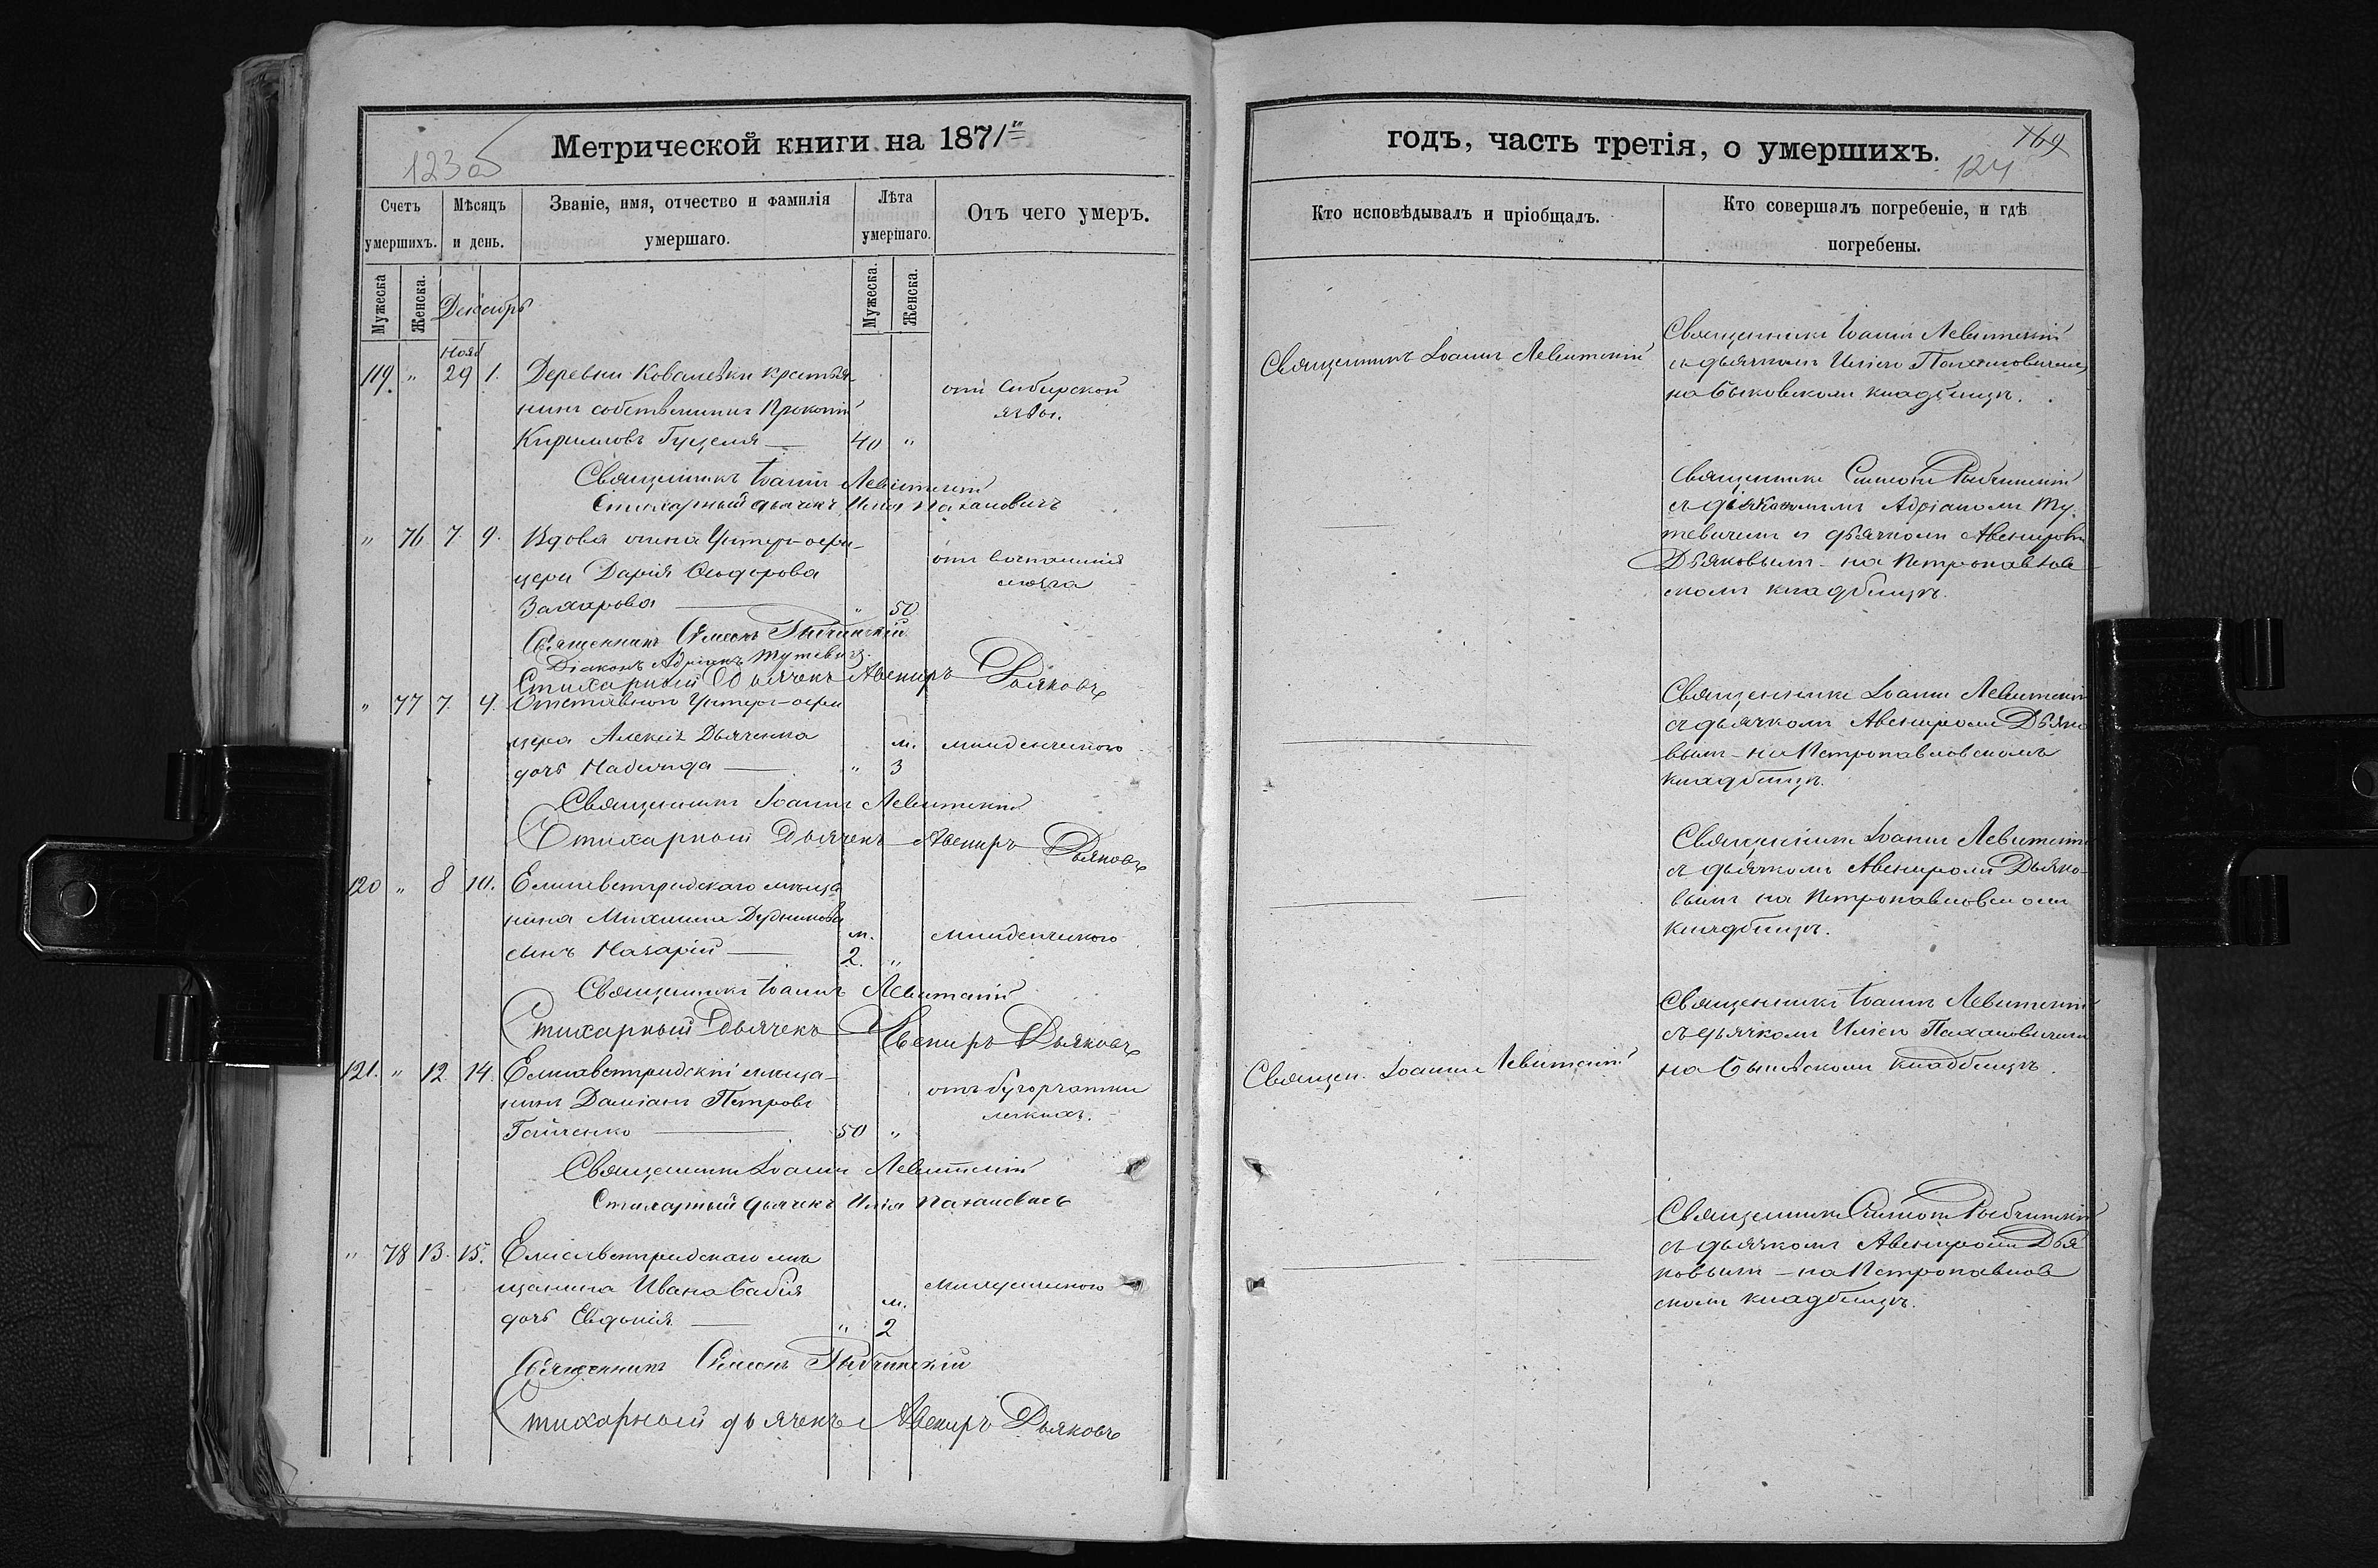 Метрической книги на 1871й
123об
Счетъ умершихъ.
Мѣсяцъ и день.
Званіе, имя, отчество и фамилія умершаго.
Лѣта умершаго.
Отъ чего умеръ.
Мужеска
Женска.
Декабрь
Мужеска.
Женска.
Нояб
119. " 29 1. Деревни Ковалевки крестья-
нинъ собственникъ Прокопій
Кирилловъ 40 "
отъ сибирской
язвы.
Священникъ Іоаннъ Левитскій
Стихарный дьячекъ Илія Паханович
" 76 7. 9. Вдова жена Унтеръ-офи-
цера Дарія Ѳеодорова
Захарова " 50
отъ воспаленія
мозга
Священникъ Симеонъ Рыбчинскій
Діаконъ Адріанъ Тутевичъ.
Стихарный Дьячекъ Авениръ Дьяковъ
" 77 7. 9. Отставного Унтеръ-офи
цера Алексѣя Дьяченка
дочь Надежда " м. 3
младенческого
Священникъ Іоаннъ Левитскій
Стихарный Дьячекъ Авениръ Дьяковъ
120 " 8 10. Елисаветградскаго мѣща
нина Михаила Дудникова
сынъ Назарій м. 2. "
младенческого
Священникъ Іоаннъ Левитскій
Стихарный Дьячекъ Авениръ Дьяковъ
121. " 12. 14. Елисаветградскій мѣща-
нинъ Даміанъ Петровъ
50 "
отъ бугорчатки
легкихъ.
Священникъ Іоаннъ Левитскій
Стихарный дьячекъ Илія Паханович
" 78 13. 15. Елисаветградскаго мѣ
щанина Ивана Бабія
дочь Евдокія " м. 2
младенческого
Священникъ Симеонъ Рыбчинскій
Стихарный дьячекъ Авениръ Дьяковъ
годъ, часть третія, о умершихъ.
169
124
Кто исповѣдывалъ и пріобщалъ.
Кто совершалъ погребеніе, и гдѣ погребены.
Священникъ Іоаннъ Левитскій
Священникъ Іоаннъ Левитскій
съ дьячкомъ Иліею Пахановичемъ
на Быковскомъ кладбищѣ.
Священникъ Симеонъ Рыбчинскій
съ діакономъ Адріаномъ Ту-
тевичемъ и дьячкомъ Авениромъ
Дьяковымъ - на Петропавлов
скомъ кладбищѣ.
Священникъ Іоаннъ Левитскій
съ дьячкомъ Авениромъ Дьяко
вымъ - на Петропавловскомъ
кладбищѣ.
Священникъ Іоаннъ Левитскій
съ дьячкомъ Авениромъ Дьяко-
вымъ на Петропавловскомъ
кладбищѣ.
Священ. Іоаннъ Левитскій
Священникъ Іоаннъ Левитскій
съ дьячкомъ Иліею Пахановичемъ
на Быковскомъ кладбищѣ.
Священникъ Симеонъ Рыбчинскій
съ дьячкомъ Авениромъ Дья
ковымъ - на Петропавлов
скомъ кладбищѣ.